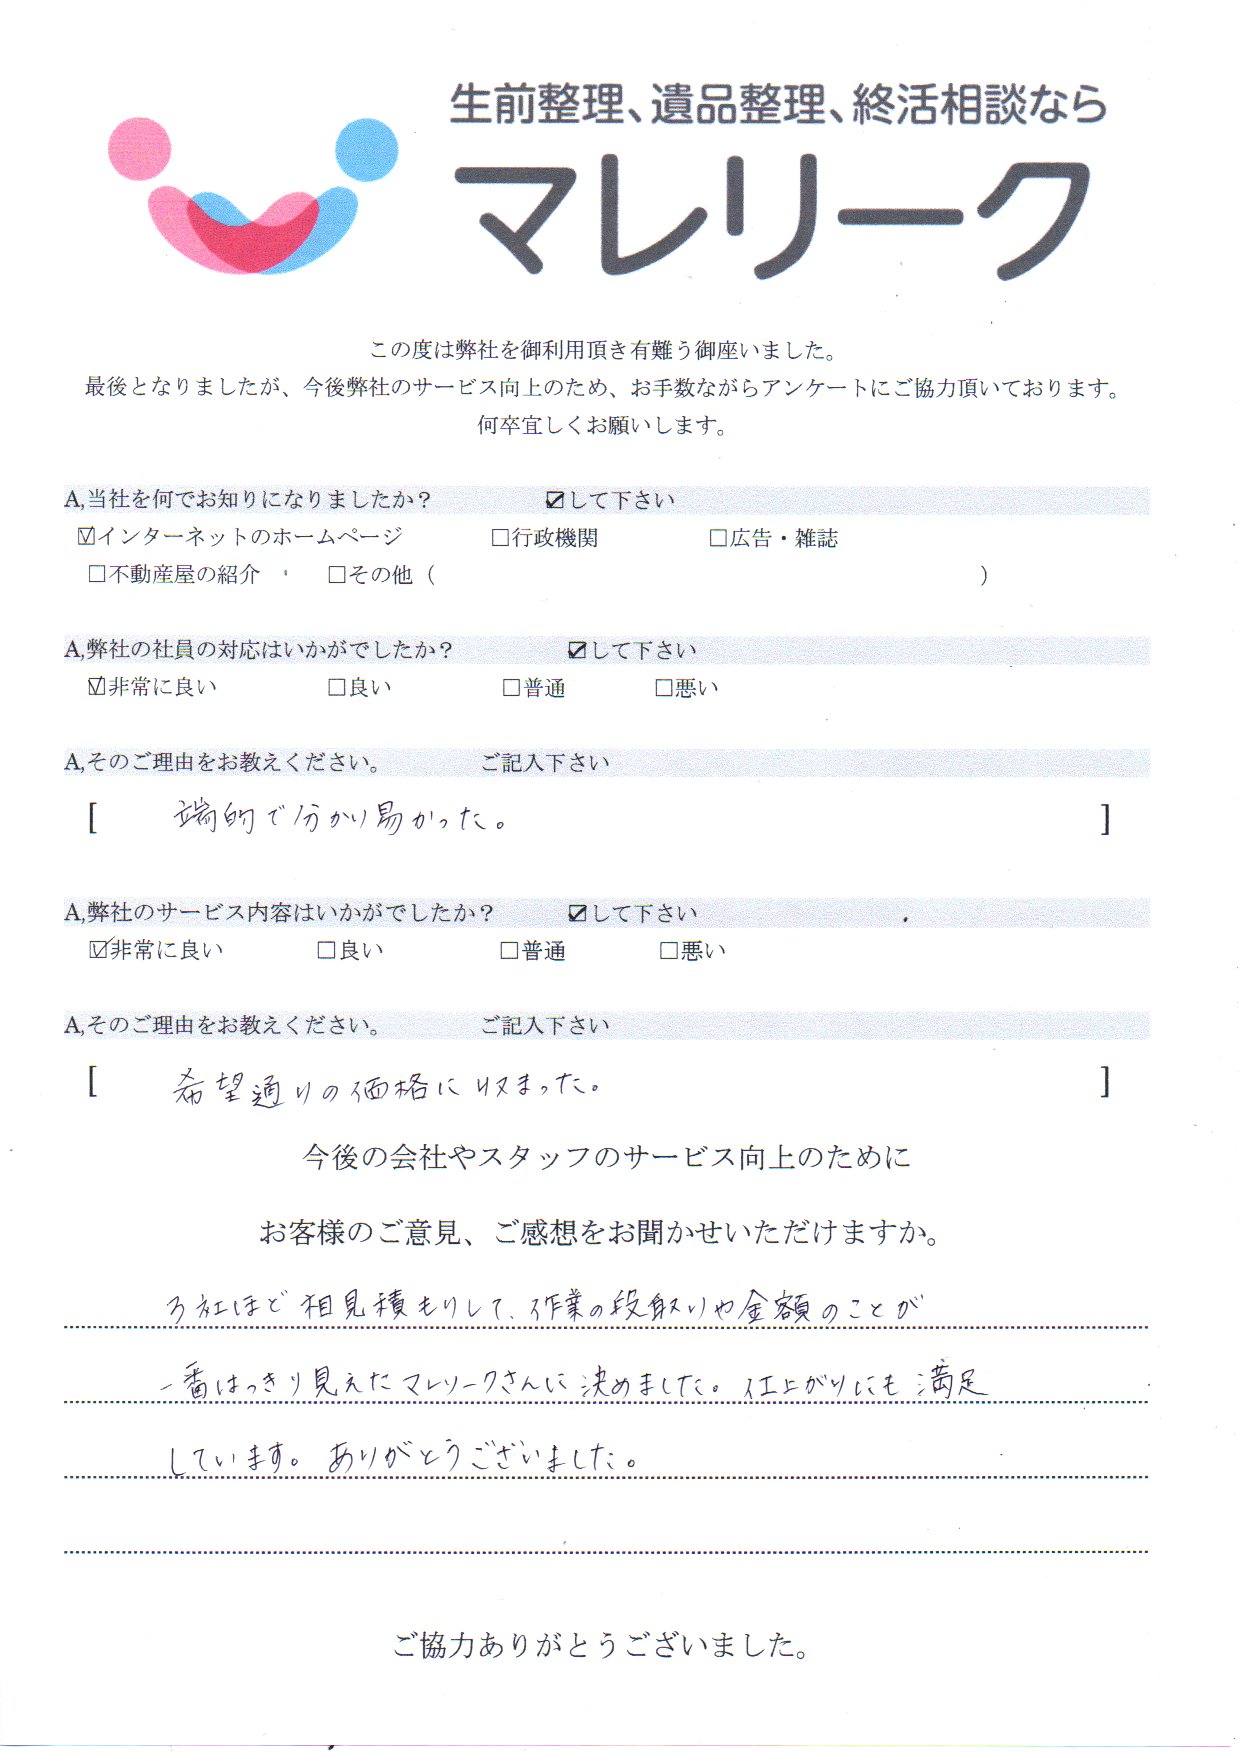 生前整理、遺品整理、終活相談なら
マレリーク
この度は弊社を御利用頂き有難う御座いました。
最後となりましたが、今後弊社のサービス向上のため、お手数ながらアンケートにご協力頂いております。
何卒宜しくお願いします。
A,当社を何でお知りになりましたか？ ☑して下さい
☑インターネットのホームページ □行政機関 □広告・雑誌
□不動産屋の紹介 □その他（ ）
A,弊社の社員の対応はいかがでしたか？ ☑して下さい
☑非常に良い □良い □普通 □悪い
A,そのご理由をお教えください。 ご記入下さい
[ 端的で分かり易かった。 ]
A,弊社のサービス内容はいかがでしたか？ ☑して下さい
☑非常に良い □良い □普通 □悪い
A,そのご理由をお教えください。 ご記入下さい
[ 希望通りの価格に収まった。 ]
今後の会社やスタッフのサービス向上のために
お客様のご意見、ご感想をお聞かせいただけますか。
3社ほど相見積もりして、作業の段取りや金額のことが
一番はっきり見えたマレリークさんに決めました。仕上がりにも満足
しています。ありがとうございました。
ご協力ありがとうございました。